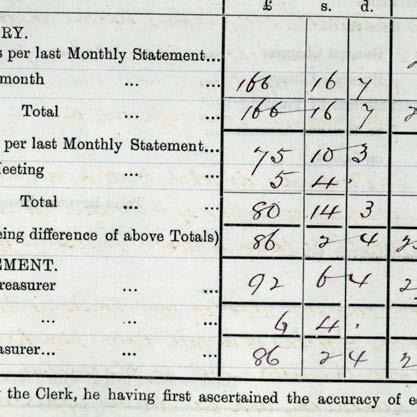 £ s. d.
RY.
s per last Monthly Statement...
month ... ... 166 16 7
Total ... ... 166 16 7
per last Monthly Statement... 75 10 3
eeting ... ... 5 4 .
Total ... ... 80 14 3
eing difference of above Totals) 86 2 4
EMENT.
reasurer ... ... 92 6 4
... ... 6 4 .
asurer... ... ... 86 2 4
the Clerk, he having first ascertained the accuracy of